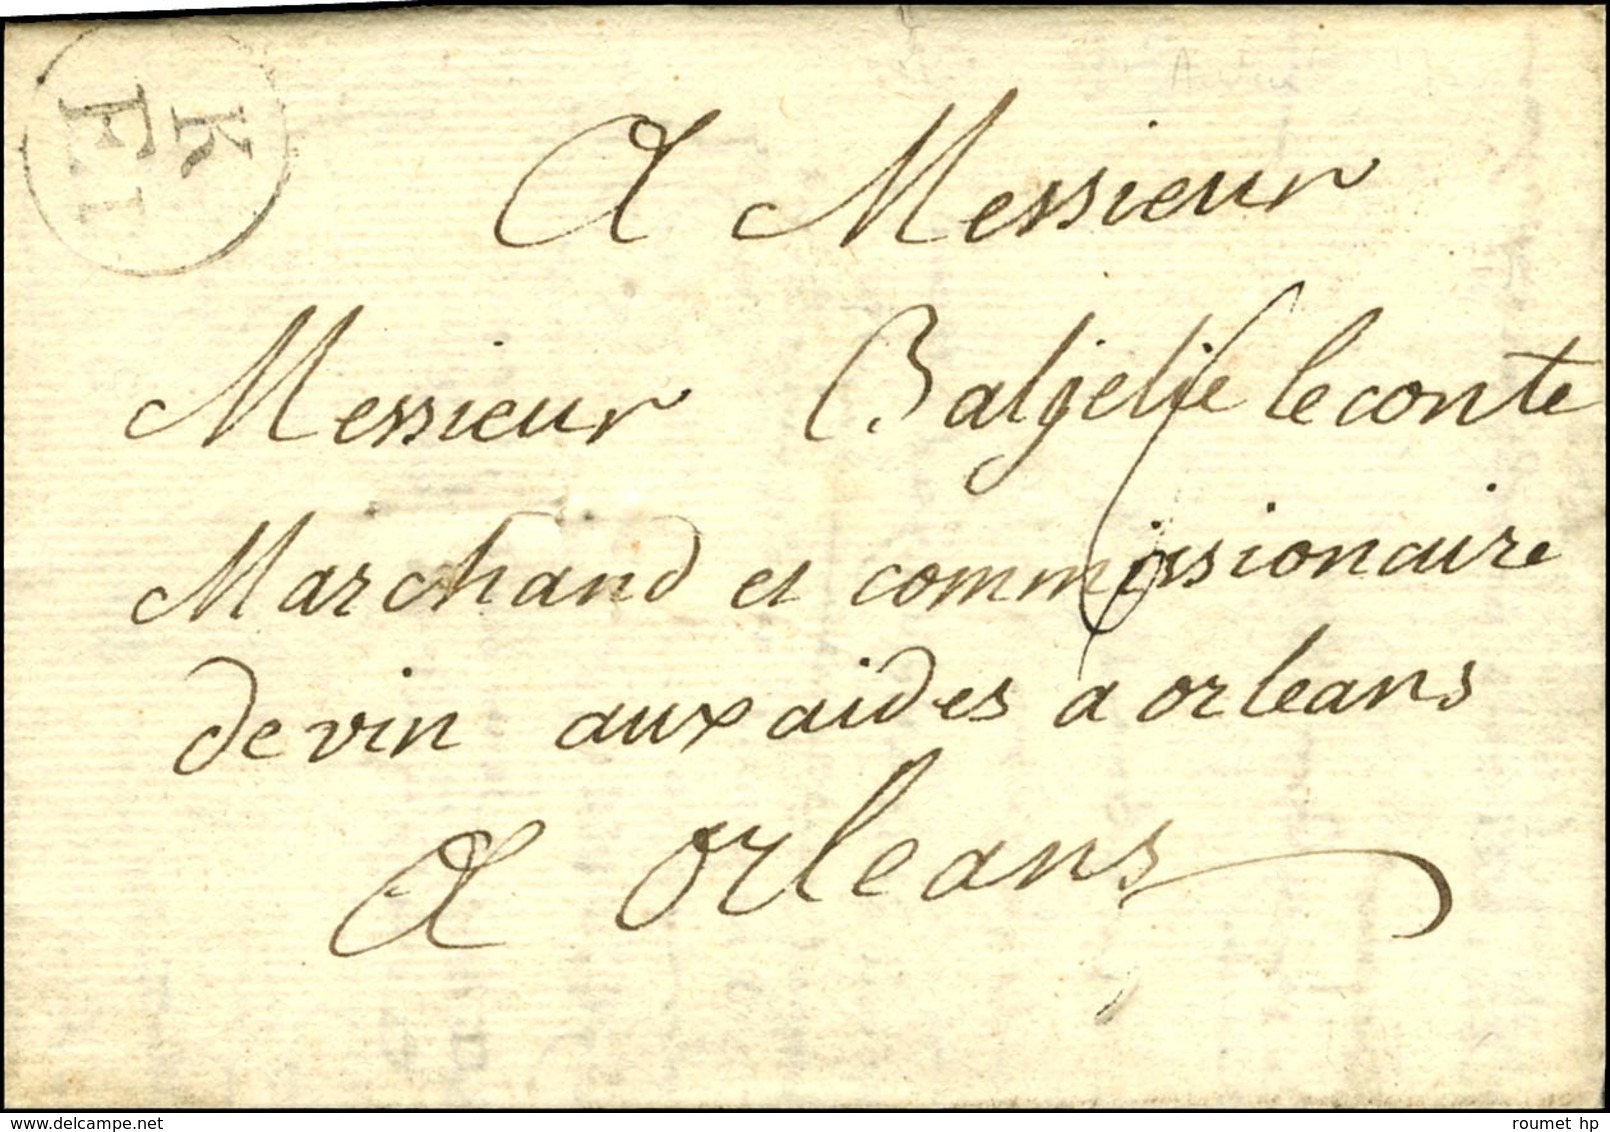 K
E.T
A Messieur
Messieur Baljelie leconte
Marchand et commissionaire
de vin aux aides a orleans
A orleans
roumet hp